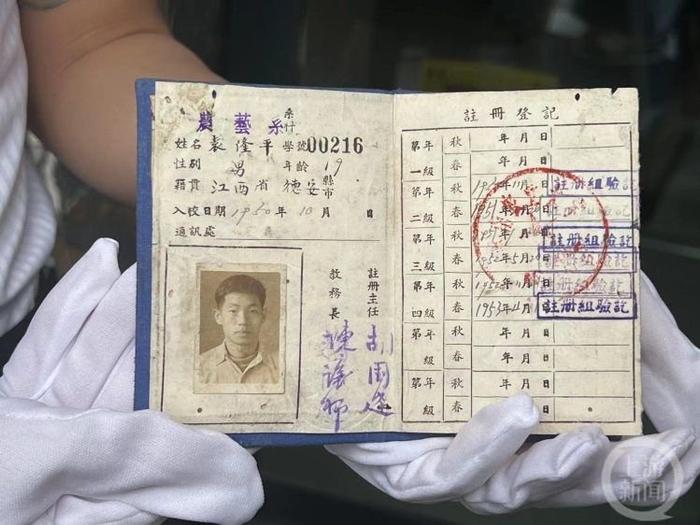 農藝系
科
姓名 袁隆平 學號 00216
性別 男 年齡 19
籍貫 江西省 德安 縣市
入校日期 1950年10月 日
通訊處
註冊主任
教務長
註冊登記
第一年級 秋 年 月 日
春 年 月 日
第二年級 秋 年 月 日 註冊組驗訖
春 年 月 日 註冊組驗訖
第三年級 秋 年 月 日 註冊組驗訖
春 1952年5月 日 註冊組驗訖
第四年級 秋 1952年 月 日 註冊組驗訖
春 1953年 月 日 註冊組驗訖
第 年級 秋 年 月 日
春 年 月 日
第 年級 秋 年 月 日
春 年 月 日
上游新闻